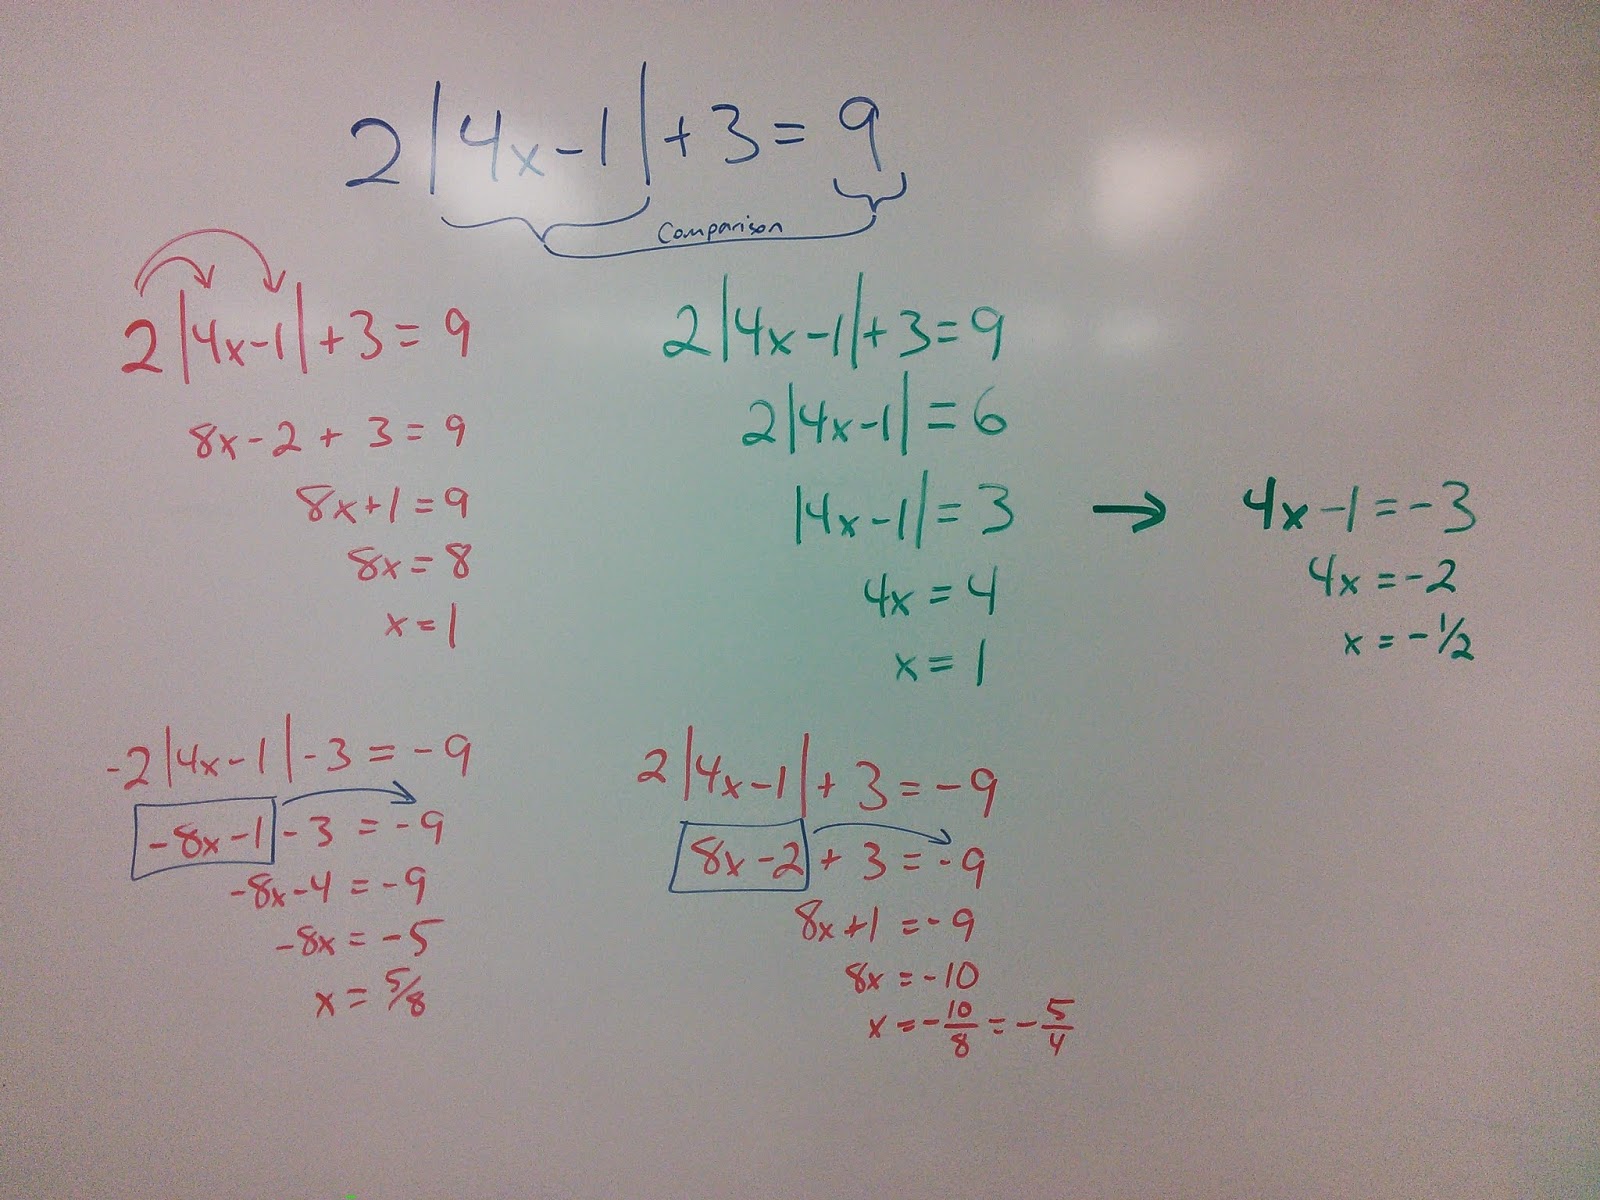 2|4x-1|+3=9
Comparison
2|4x-1|+3=9
8x-2+3=9
8x+1=9
8x=8
x=1
2|4x-1|+3=9
2|4x-1|=6
|4x-1|=3 → 4x-1=-3
4x=4
x=1
4x=-2
x=-1/2
-2|4x-1|-3=-9
-8x-1-3=-9
-8x-4=-9
-8x=-5
x=5/8
2|4x-1|+3=-9
8x-2+3=-9
8x+1=-9
8x=-10
x=-10/8=-5/4